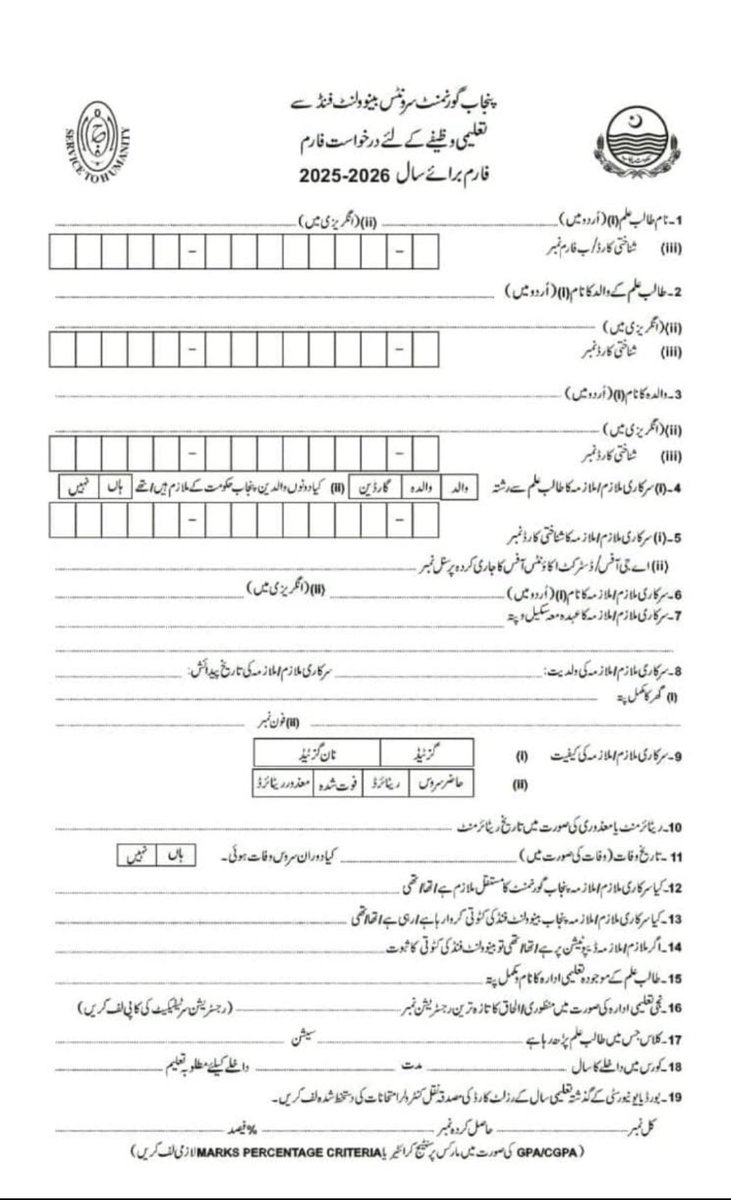 پنجاب گورنمنٹ سرونٹس بینوولنٹ فنڈ سے
تعلیمی وظیفے کے لئے درخواست فارم
فارم برائے سال 2025-2026
SERVICE TO HUMANITY
1۔ نام طالب علم (i) (اُردو میں) (ii) (انگریزی میں)
(iii) شناختی کارڈ/ب فارم نمبر
2۔ طالب علم کے والد کا نام (i) (اُردو میں)
(ii) (انگریزی میں)
(iii) شناختی کارڈ نمبر
3۔ والدہ کا نام (i) (اُردو میں)
(ii) (انگریزی میں)
(iii) شناختی کارڈ نمبر
4۔ (i) سرکاری ملازم/ملازمہ کا طالب علم سے رشتہ والد والدہ گارڈین (ii) کیا دونوں والدین پنجاب حکومت کے ملازم ہیں/تھے ہاں نہیں
5۔ (i) سرکاری ملازم/ملازمہ کا شناختی کارڈ نمبر
(ii) اے جی آفس/ڈسٹرکٹ اکاؤنٹس آفس کا جاری کردہ پرسنل نمبر
6۔ سرکاری ملازم/ملازمہ کا نام (i) (اُردو میں) (ii) (انگریزی میں)
7۔ سرکاری ملازم/ملازمہ کا عہدہ معہ سکیل و پتہ
8۔ سرکاری ملازم/ملازمہ کی ولدیت: سرکاری ملازم/ملازمہ کی تاریخ پیدائش:
(i) گھر کا مکمل پتہ
(ii) فون نمبر
9۔ سرکاری ملازم/ملازمہ کی کیفیت (i) گزٹیڈ نان گزٹیڈ
(ii) حاضر سروس ریٹائرڈ فوت شدہ معذور ریٹائرڈ
10۔ ریٹائرمنٹ یا معذوری کی صورت میں تاریخ ریٹائرمنٹ
11۔ تاریخ وفات (وفات کی صورت میں) کیا دوران سروس وفات ہوئی۔ ہاں نہیں
12۔ کیا سرکاری ملازم/ملازمہ پنجاب گورنمنٹ کا مستقل ملازم ہے/تھا/تھی
13۔ کیا سرکاری ملازم/ملازمہ پنجاب بینوولنٹ فنڈ کی کٹوتی کروا رہا ہے/رہی ہے/تھا/تھی
14۔ اگر ملازم/ملازمہ ڈیپوٹیشن پر ہے/تھا/تھی تو بینوولنٹ فنڈ کی کٹوتی کا ثبوت
15۔ طالب علم کے موجودہ تعلیمی ادارہ کا نام و مکمل پتہ
16۔ نجی تعلیمی ادارہ کی صورت میں منظوری/الحاق کا تازہ ترین رجسٹریشن نمبر (رجسٹریشن سرٹیفکیٹ کی کاپی لف کریں)
17۔ کلاس جس میں طالب علم پڑھ رہا ہے سیشن
18۔ کورس میں داخلے کا سال مدت داخلے کیلئے مطلوبہ تعلیم
19۔ بورڈ یا یونیورسٹی کے گذشتہ تعلیمی سال کے رزلٹ کارڈ کی مصدقہ نقل کنٹرولر امتحانات کی دستخط شدہ لف کریں۔
کل نمبر حاصل کردہ نمبر %فیصد
(GPA/CGPA کی صورت میں مارکس پرسنٹیج کرائٹیریا MARKS PERCENTAGE CRITERIA لازمی لف کریں)